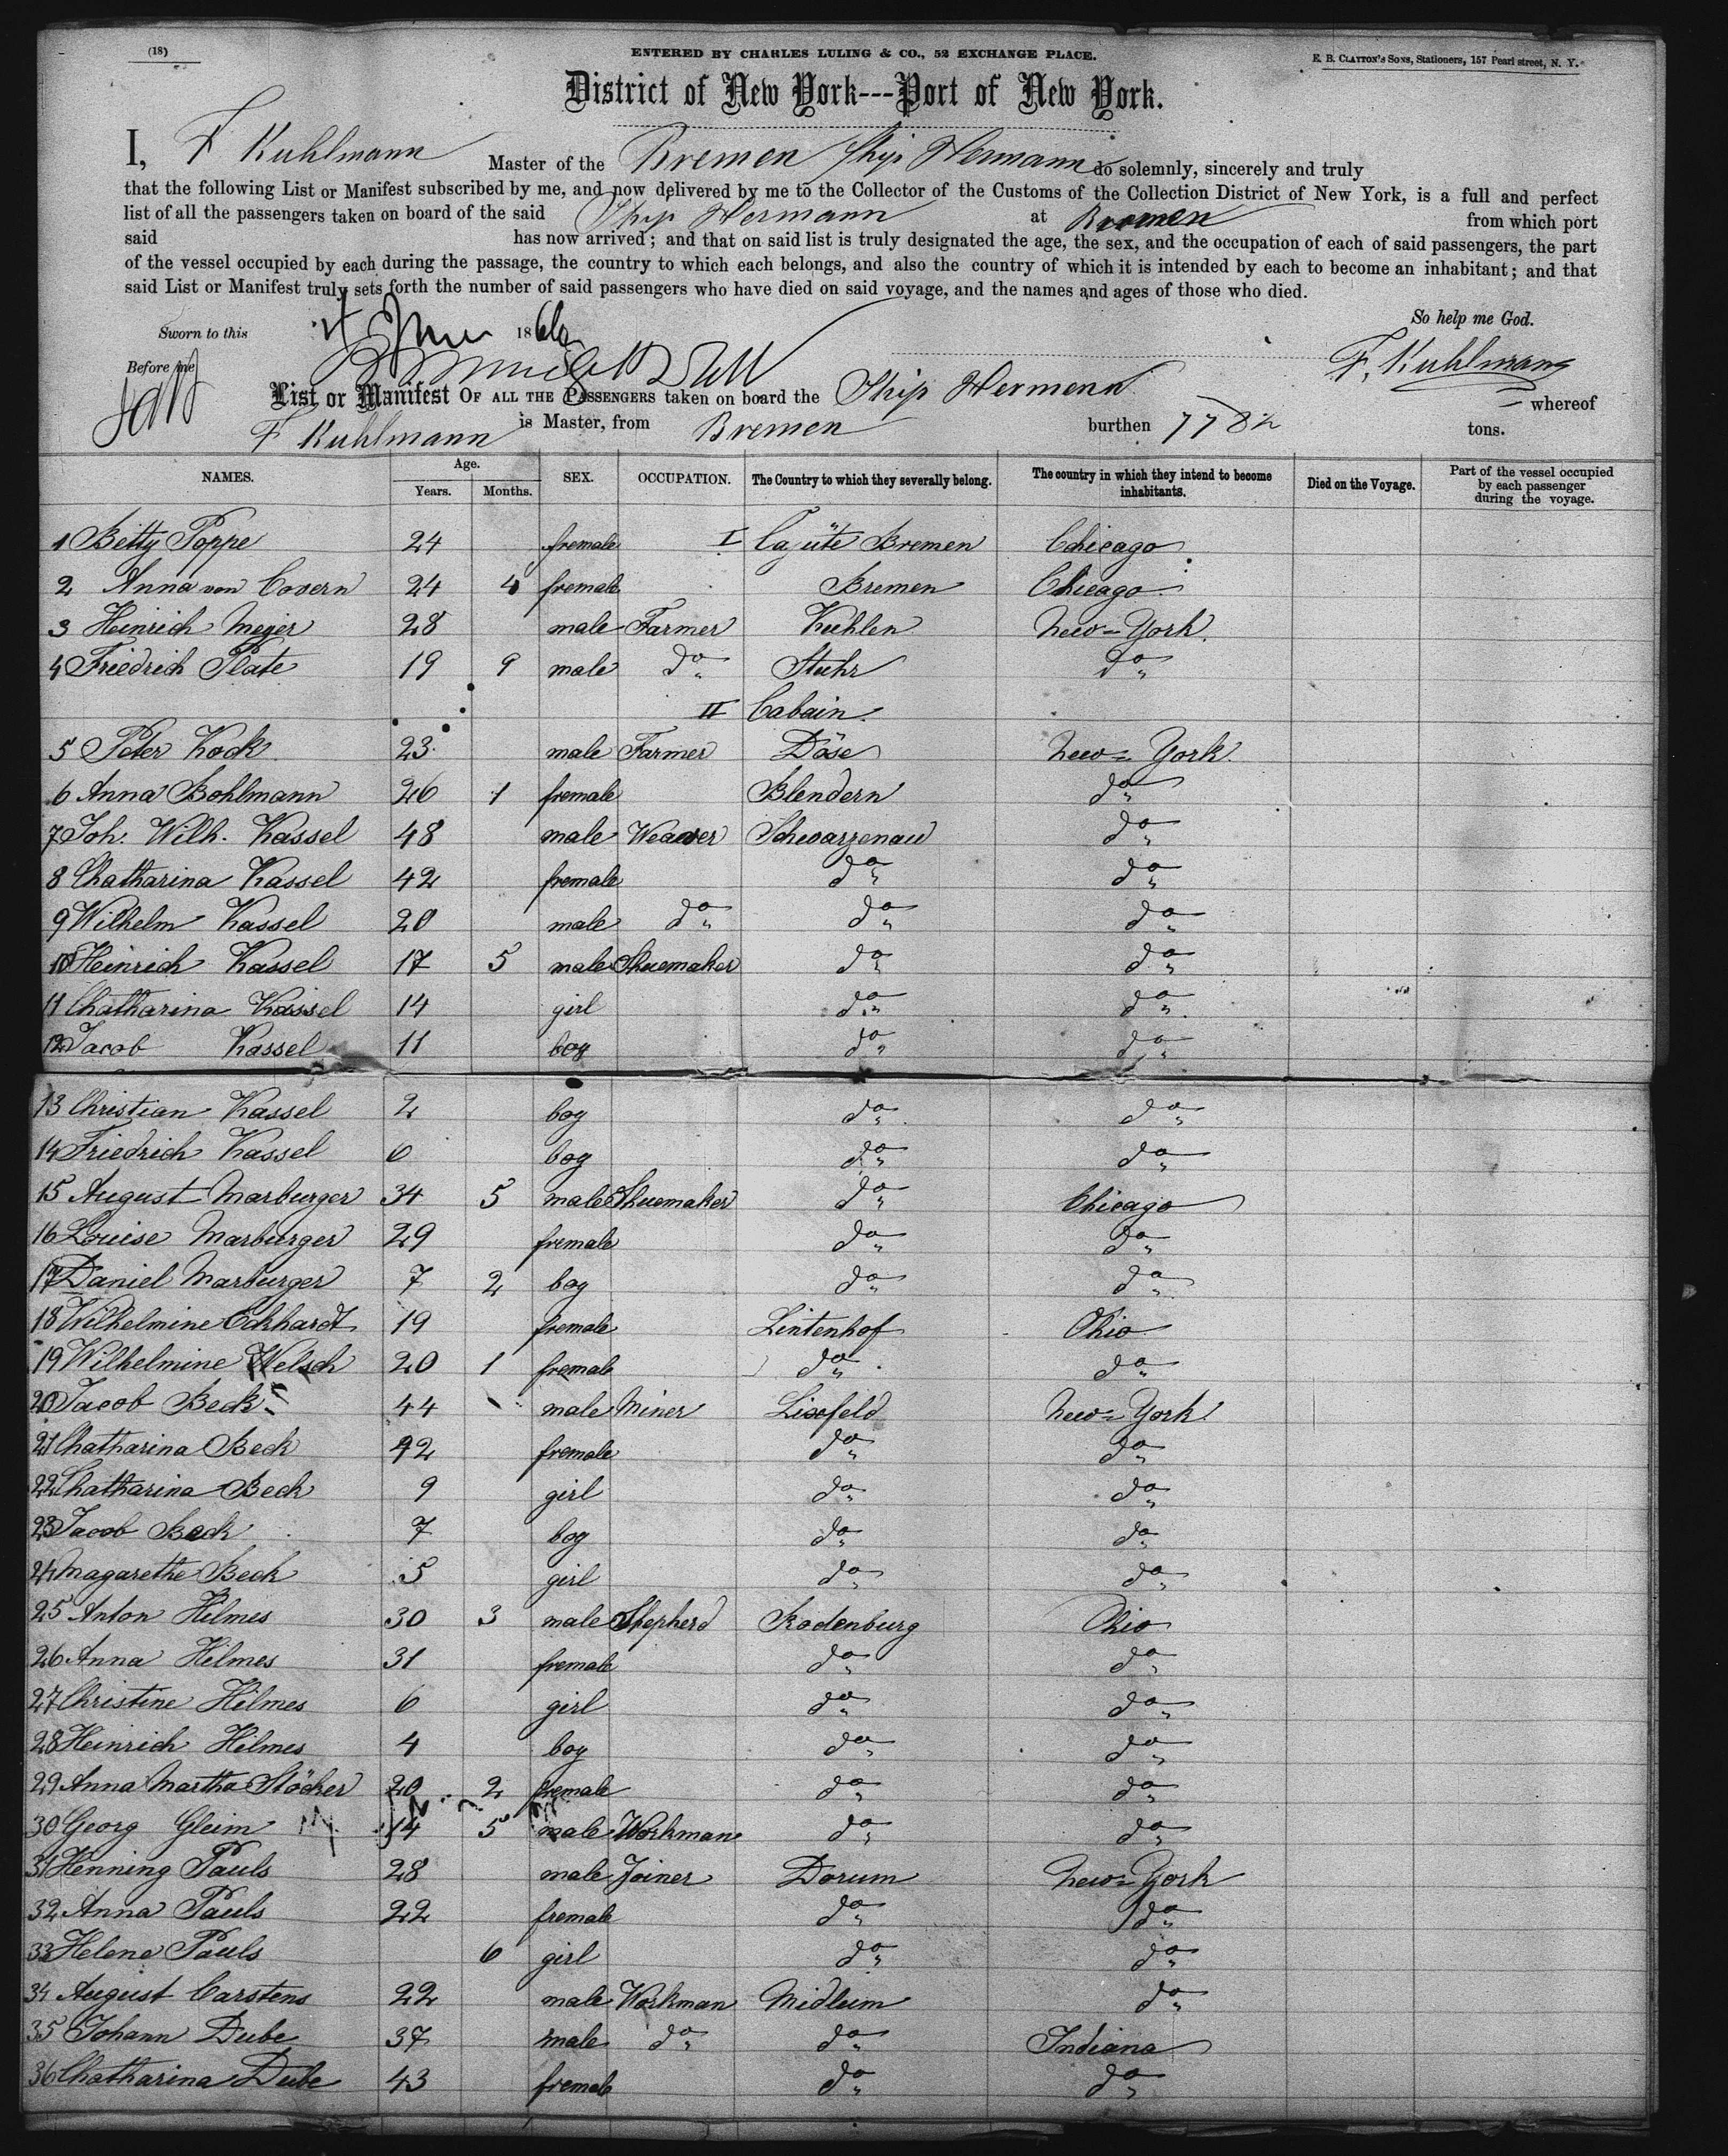 (18)
ENTERED BY CHARLES LULING & CO., 52 EXCHANGE PLACE.
E. B. CLAYTON'S SONS, Stationers, 157 Pearl street, N. Y.
District of New York---Port of New York.
I, F Kuhlmann Master of the Bremen Ship Hermann do solemnly, sincerely and truly
that the following List or Manifest subscribed by me, and now delivered by me to the Collector of the Customs of the Collection District of New York, is a full and perfect
list of all the passengers taken on board of the said Ship Hermann at Bremen from which port
said has now arrived; and that on said list is truly designated the age, the sex, and the occupation of each of said passengers, the part
of the vessel occupied by each during the passage, the country to which each belongs, and also the country of which it is intended by each to become an inhabitant; and that
said List or Manifest truly sets forth the number of said passengers who have died on said voyage, and the names and ages of those who died.
So help me God.
Sworn to this 4 June 1866
F. Kuhlmann
Before me
List or Manifest OF ALL THE PASSENGERS taken on board the Ship Hermann whereof
F Kuhlmann is Master, from Bremen burthen 778 tons.
NAMES. Age. Years. Months. SEX. OCCUPATION. The Country to which they severally belong. The country in which they intend to become inhabitants. Died on the Voyage. Part of the vessel occupied by each passenger during the voyage.
1 Betty Poppe 24 fremale I Cajüte Bremen Chicago
2 Anna von Covern 24 4 fremale Bremen Chicago
3 Heinrich Meyer 28 male Farmer Kuhlen New-York.
4 Friedrich Plate 19 9 male do Stuhr do
II Cabain.
5 Peter Kock 23 male Farmer Döse New-York.
6 Anna Bohlmann 26 1 fremale Blendern do
7 Joh. Wilh. Kassel 48 male Weawer Schwarzenau do
8 Chatharina Kassel 42 fremale do do
9 Wilhelm Kassel 20 male do do do
10 Heinrich Kassel 17 5 male Shuemaker do do
11 Chatharina Kassel 14 girl do do
12 Jacob Kassel 11 boy do do
13 Christian Kassel 2 boy do do
14 Friedrich Kassel 6 boy do do
15 August Marburger 34 5 male Shuemaker do Chicago
16 Louise Marburger 29 fremale do do
17 Daniel Marburger 7 2 boy do do
18 Wilhelmine Eckhardt 19 fremale Lintenhof Ohio
19 Wilhelmine Welsch 20 1 fremale do do
20 Jacob Beck 44 male Miner Lisefeld New-York
21 Chatharina Beck 42 fremale do do
22 Chatharina Beck 9 girl do do
23 Jacob Beck 7 boy do do
24 Magarethe Beck 5 girl do do
25 Anton Hilmes 30 3 male Shepherd Rodenburg Ohio
26 Anna Hilmes 31 fremale do do
27 Christine Hilmes 6 girl do do
28 Heinrich Hilmes 4 boy do do
29 Anna Martha Stöcker 20 2 fremale do do
30 Georg Gleim 14 5 male Workman do do
31 Henning Pauls 28 male Joiner Dorum New-York
32 Anna Pauls 22 fremale do do
33 Helene Pauls 6 girl do do
34 August Carstens 22 male Workman Midlum do
35 Johann Dube 37 male do do Indiana
36 Chatharina Dube 43 fremale do do